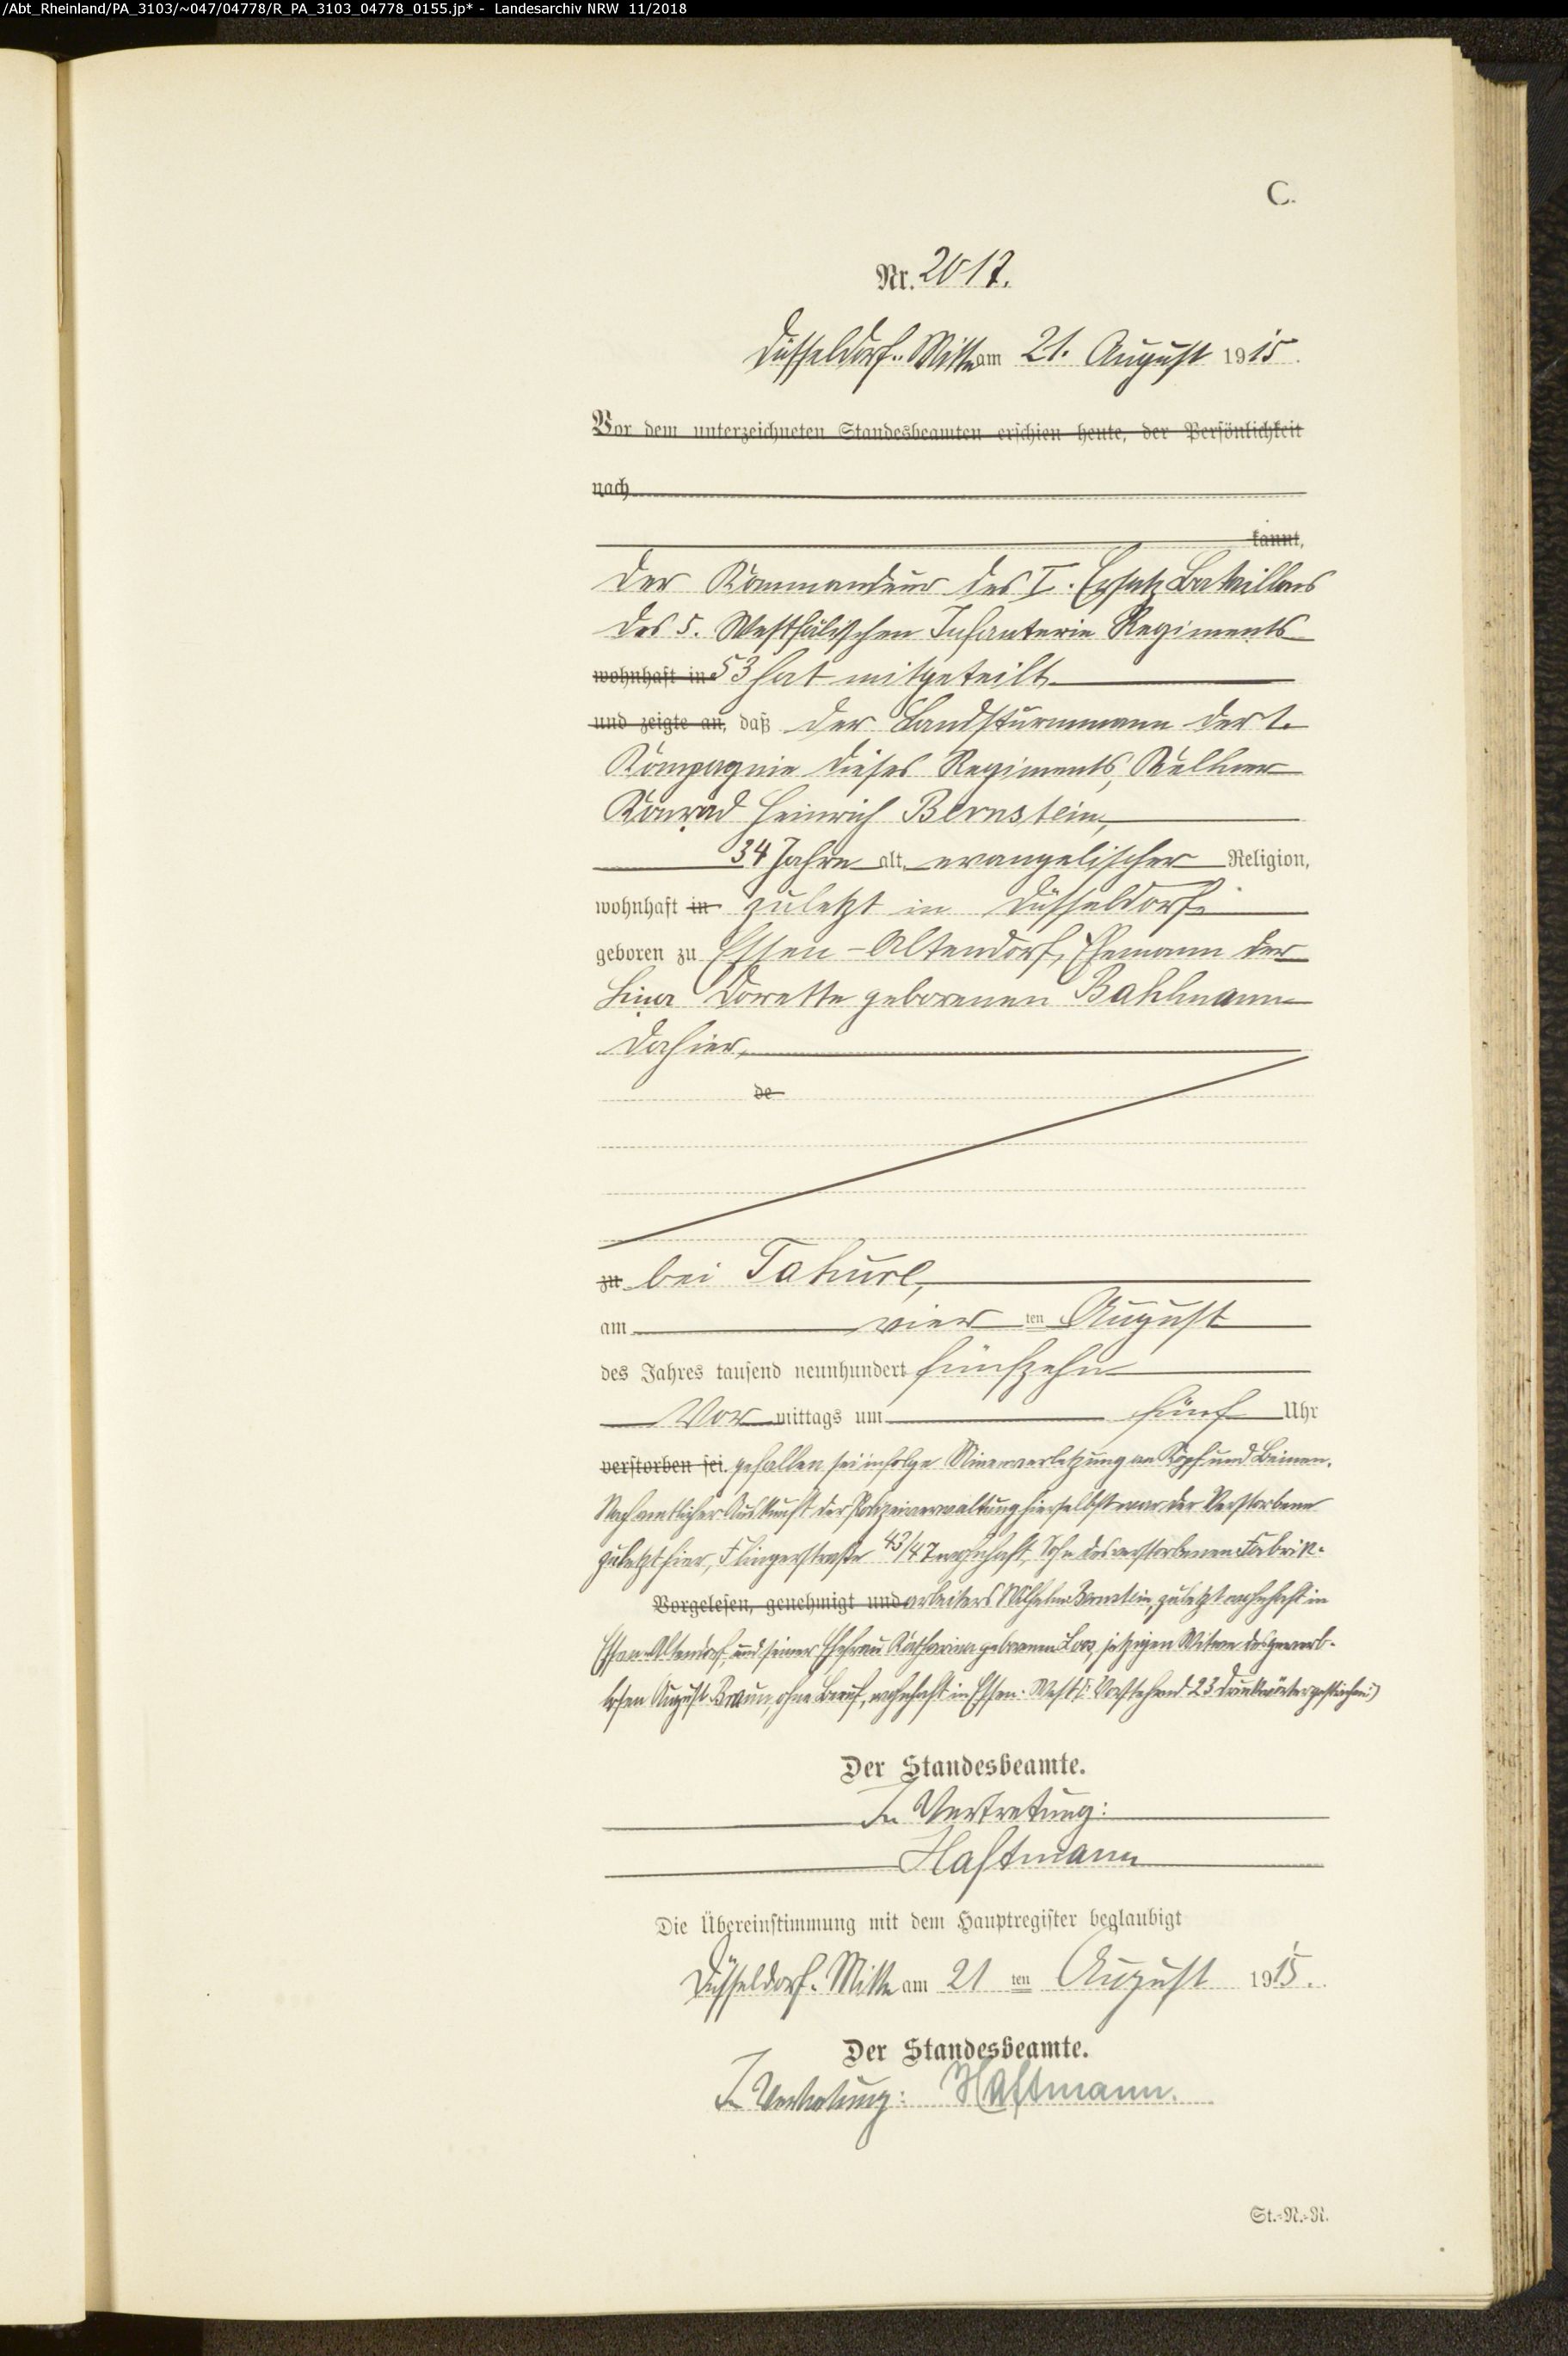 /Abt_Rheinland/PA_3103/~047/04778/R_PA_3103_04778_0155.jp* - Landesarchiv NRW 11/2018
C.
Nr. 2017.
Düsseldorf-Mitte am 21. August 1915.
Vor dem unterzeichneten Standesbeamten erschien heute, der Persönlichkeit
nach
kannt,
Der Kommandeur des I. Ersatz Bataillons
des 5. Westfälischen Infanterie Regiments
wohnhaft in 53 hat mitgeteilt,
und zeigte an, daß der Landsturmmann der 1.
Kompagnie dieses Regiments, Kellner
Konrad Heinrich Bernstein,
34 Jahre alt, evangelischer Religion,
wohnhaft in zuletzt in Düsseldorf,
geboren zu Essen-Altendorf, Ehemann der
Lina Dorette geborenen Bahlmann
dahier,
de
zu bei Tahure,
am vierten August
des Jahres tausend neunhundert fünfzehn
Vormittags um fünf Uhr
verstorben sei. gefallen sei infolge Minenverletzung an Kopf und Beinen.
Nach amtlicher Auskunft der Polizeiverwaltung hierselbst war der Verstorbene
zuletzt hier, Flingerstraße 43/47 wohnhaft, Sohn des verstorbenen Fabrik-
Vorgelesen, genehmigt und arbeiters Wilhelm Bernstein, zuletzt wohnhaft in
Essen-Altendorf, und seiner Ehefrau Katharina geborenen Loos, jetzigen Witwe des gewerb-
losen August Braun, ohne Beruf, wohnhaft in Essen-West (: Vorstehend 23 Druckworte gestrichen :)
Der Standesbeamte.
In Vertretung:
Hastmann
Die Übereinstimmung mit dem Hauptregister beglaubigt
Düsseldorf-Mitte am 21ten August 1915.
Der Standesbeamte.
In Vertretung: Hastmann.
St.-N.-R.